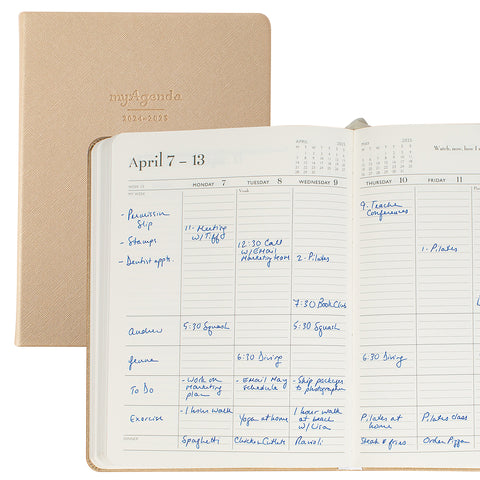 myAgenda
2024-2025
April 7 – 13
APRIL 2025
MAY 2025
MY WEEK
MONDAY 7
TUESDAY 8
WEDNESDAY 9
THURSDAY 10
FRIDAY 11
- Permission
Slip
- Stamps
- Dentist appts.
11- Meeting
w/Tiffy
12:30 Call
w/EMail
Marketing team
2- Pilates
7:30 Book Club
9- Teacher
Conferences
1- Pilates
Andrew
5:30 Squash
5:30 Squash
Jenna
6:30 Diving
6:30 Diving
To Do
- Work on
Marketing
plan
- EMail May
Schedule
- Ship packages
to photographer
Exercise
- 1 hour walk
Yoga at home
1 hour walk
at beach
w/Lisa
Pilates at
home
Pilates class
DINNER
Spaghetti
Chicken Cutlets
Ravioli
Steak & fries
Order Pizza